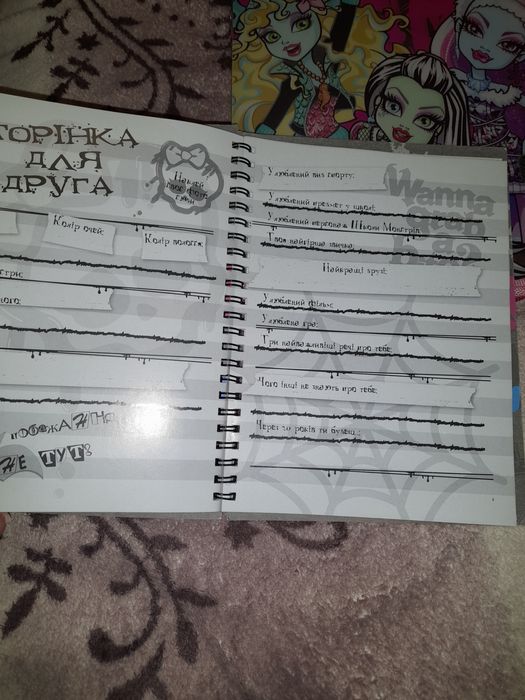 ТОРІНКА
ДЛЯ
ДРУГА
Наклей
своє фото
Колір очей:
Колір волосся:
ПОБАЖАННЯ
ТУТ:
Улюблений вид спорту:
Улюблений предмет у школі:
Улюблений персонаж Школи Монстрів:
Твоя найгірша звичка:
Найкращі друзі:
Улюблений фільм:
Улюблена гра:
Три найважливіші речі про тебе:
Чого інші не знають про тебе:
Через 20 років ти будеш:
Wanna